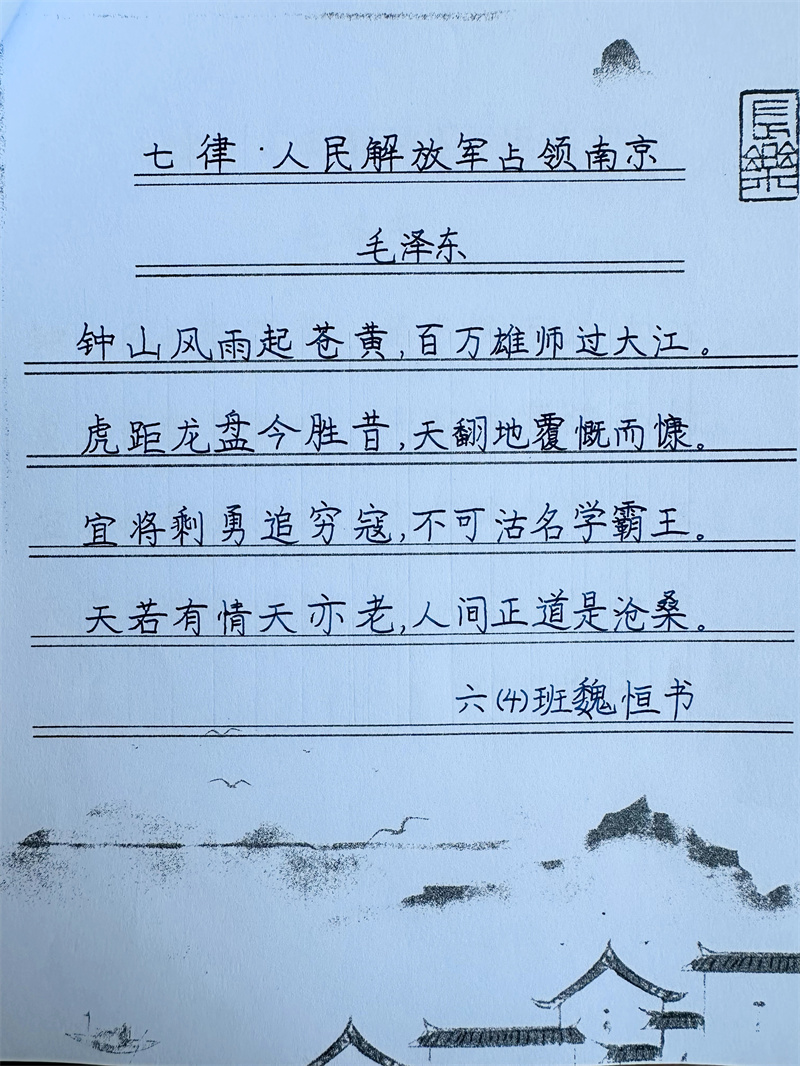 七律·人民解放军占领南京
毛泽东
钟山风雨起苍黄,百万雄师过大江。
虎距龙盘今胜昔,天翻地覆慨而慷。
宜将剩勇追穷寇,不可沽名学霸王。
天若有情天亦老,人间正道是沧桑。
六(4)班魏恒书